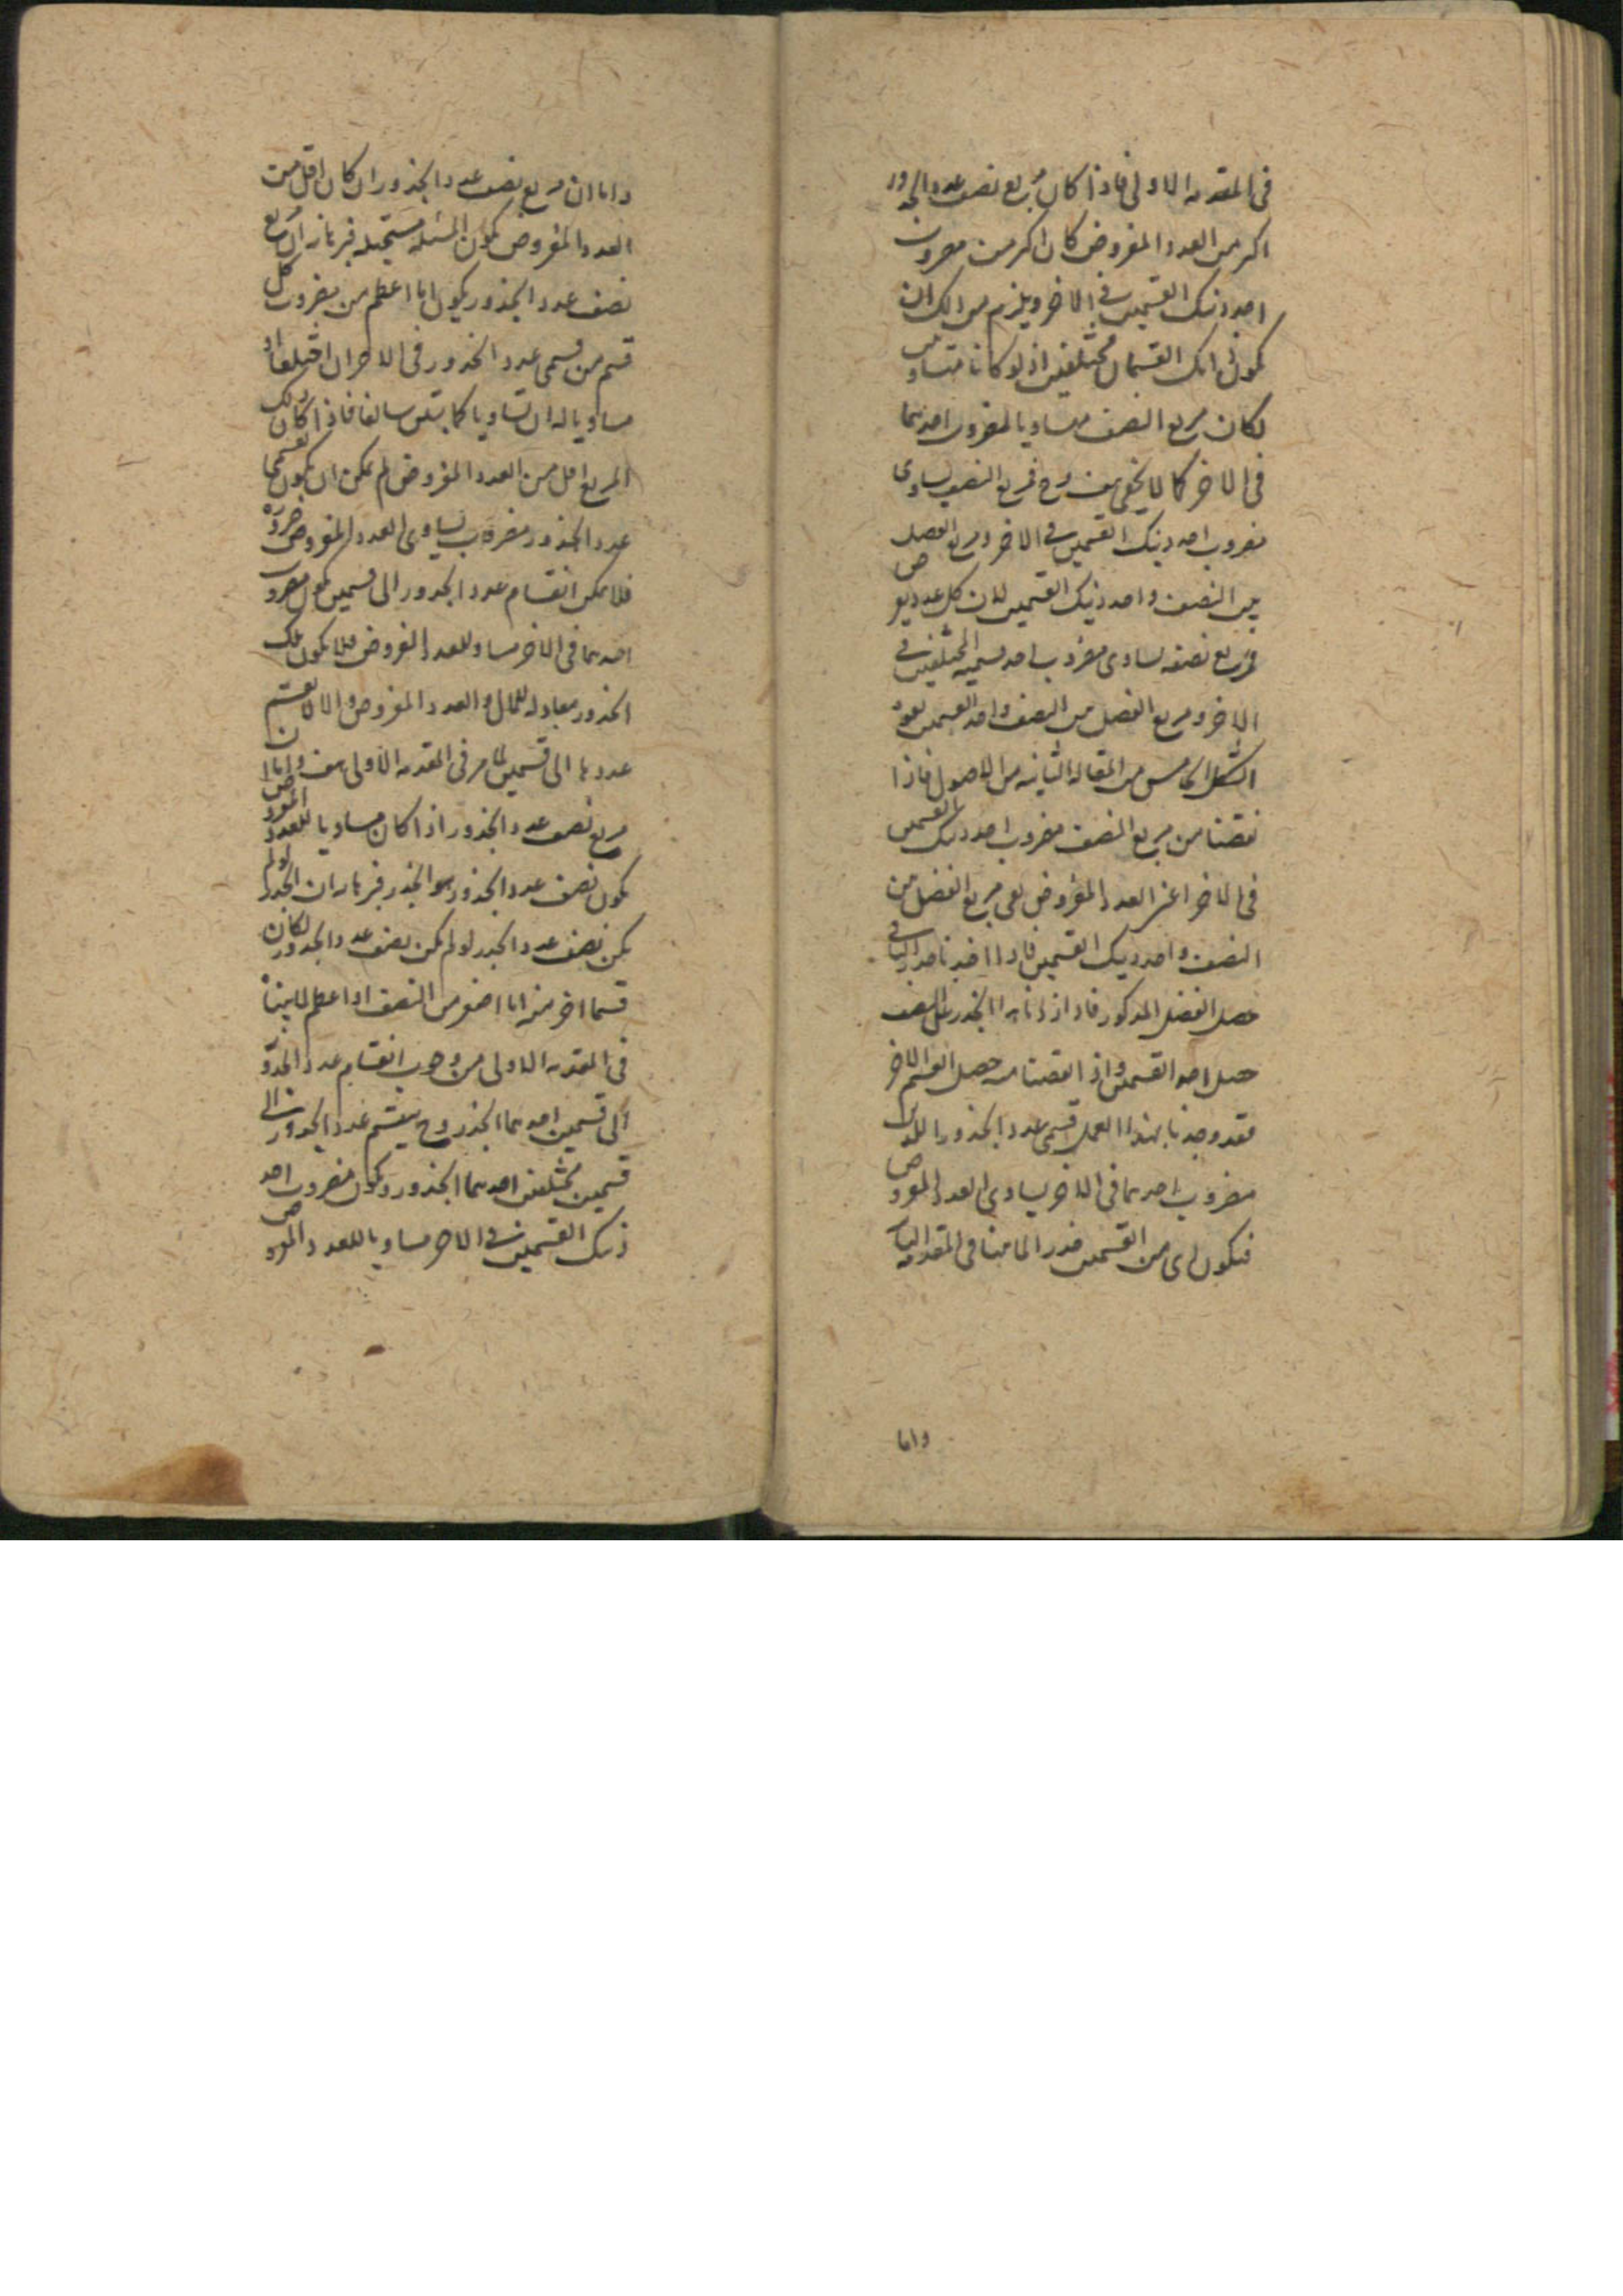 فى المقدمه الاولى فاذا كان مربع نصف عدد الجذور
اكبر من العدد المفروض كان اكبر من مضروب
احد ذينك القسمين فى الاخر ويلزم من ذلك ان
يكون ذانك القسمان مختلفين اذ لو كانا متساويين
لكان مربع النصف مساويا لمضروب احدهما
فى الاخر كما لا يخفى هف وح فمربع النصف يساوى
مضروب احد ذينك القسمين فى الاخر ومربع الفضل
بين النصف واحد ذينك القسمين لان كل عدد يفرض
فمربع نصفه يساوى مضروب احد قسميه المختلفين فى
الاخر ومربع الفضل بين النصف واحد القسمين
الشكل الخامس من المقاله الثانيه من الاصول فاذا
نقصنا من مربع النصف مضروب احد ذينك القسمين
فى الاخر اعنى العدد المفروض بقى مربع الفضل بين
النصف واحد ذينك القسمين فاذا اخذنا جذر الباقى
حصل الفضل المذكور فاذا زدنا هذا الجذر على النصف
حصل احد القسمين واذا نقصناه منه حصل القسم الاخر
فقد وجدنا بهذا العمل قسمى عدد الجذور اللذين
مضروب احدهما فى الاخر يساوى العدد المفروض
فيكون اى من القسمين جذر المال لما بينا فى المقدمه الثانيه
واما
واما ان مربع نصف عدد الجذور ان كان اقل من
العدد المفروض يكون المسئله مستحيله فبرهانه ان مربع
نصف عدد الجذور يكون اما اعظم من مضروب كل
قسم من قسمى عدد الجذور فى الاخر ان اختلفا او
مساويا له ان تساويا كما تبين سالفا فاذا كان ذلك
المربع اقل من العدد المفروض لم يمكن ان يكون لقسمى
عدد الجذور مضروب يساوى العدد المفروض ضرورة
فلا يمكن انقسام عدد الجذور الى قسمين يكون مضروب
احدهما فى الاخر مساو للعدد المفروض فلا يكون تلك
الجذور معادله للمال والعدد المفروض والا لانقسم
عددها الى قسمين لما مر فى المقدمه الاولى هف واما ان
مربع نصف عدد الجذور اذا كان مساويا للعدد المفروض
يكون نصف عدد الجذور هو الجذر فبرهانه ان الجذر لو لم
يكن نصف عدد الجذور لكان
قسما اخر منه اما اصغر من النصف او اعظم لما بيناه
فى المقدمه الاولى من وجوب انقسام عدد الجذور
الى قسمين احدهما الجذر وح ينقسم عدد الجذور الى
قسمين مختلفين احدهما الجذر ويكون مضروب احد
ذينك القسمين فى الاخر مساويا للعدد المفروض